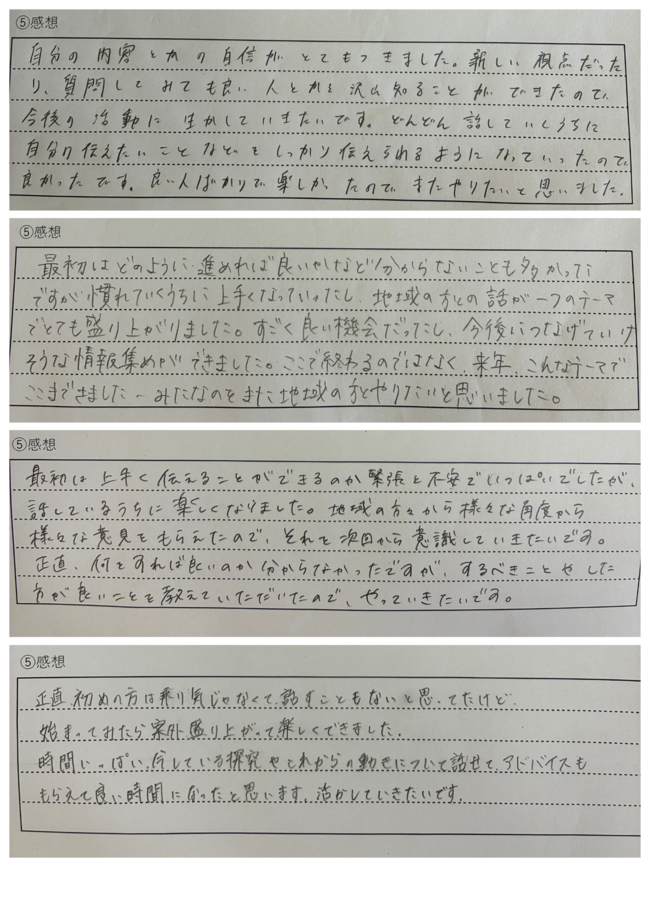 ⑤感想
自分の内容とかの自信がとてもつきました。新しい視点だった
り、質問してみても良い人とかも沢山知ることができたので、
今後の活動に生かしていきたいです。どんどん話していくうちに
自分の伝えたいことなどをしっかり伝えられるようになっていったので、
良かったです。良い人ばかりで楽しかったのでまたやりたいと思いました。
⑤感想
最初はどのように進めれば良いかなど分からないことも多かった
ですが慣れていくうちに上手くなっていったし、地域の方との話が一つのテーマ
でとても盛り上がりました。すごく良い機会だったし、今後につなげていけ
そうな情報集めができました。ここで終わるのではなく、来年、こんなテーマで
ここまできました〜みたいなのをまた地域の方とやりたいと思いました。
⑤感想
最初は上手く伝えることができるのか緊張と不安でいっぱいでしたが、
話しているうちに楽しくなりました。地域の方々から様々な角度から
様々な意見をもらえたので、それを次回から意識していきたいです。
正直、何をすれば良いのか分からなかったですが、するべきことやした
方が良いことを教えていただいたので、やっていきたいです。
⑤感想
正直初めの方は乗り気じゃなくて話すこともないと思ってたけど、
始まってみたら案外盛り上がって楽しくできました。
時間いっぱい、今している探究やこれからの動きについて話せて、アドバイスも
もらえて良い時間になったと思います。活かしていきたいです。